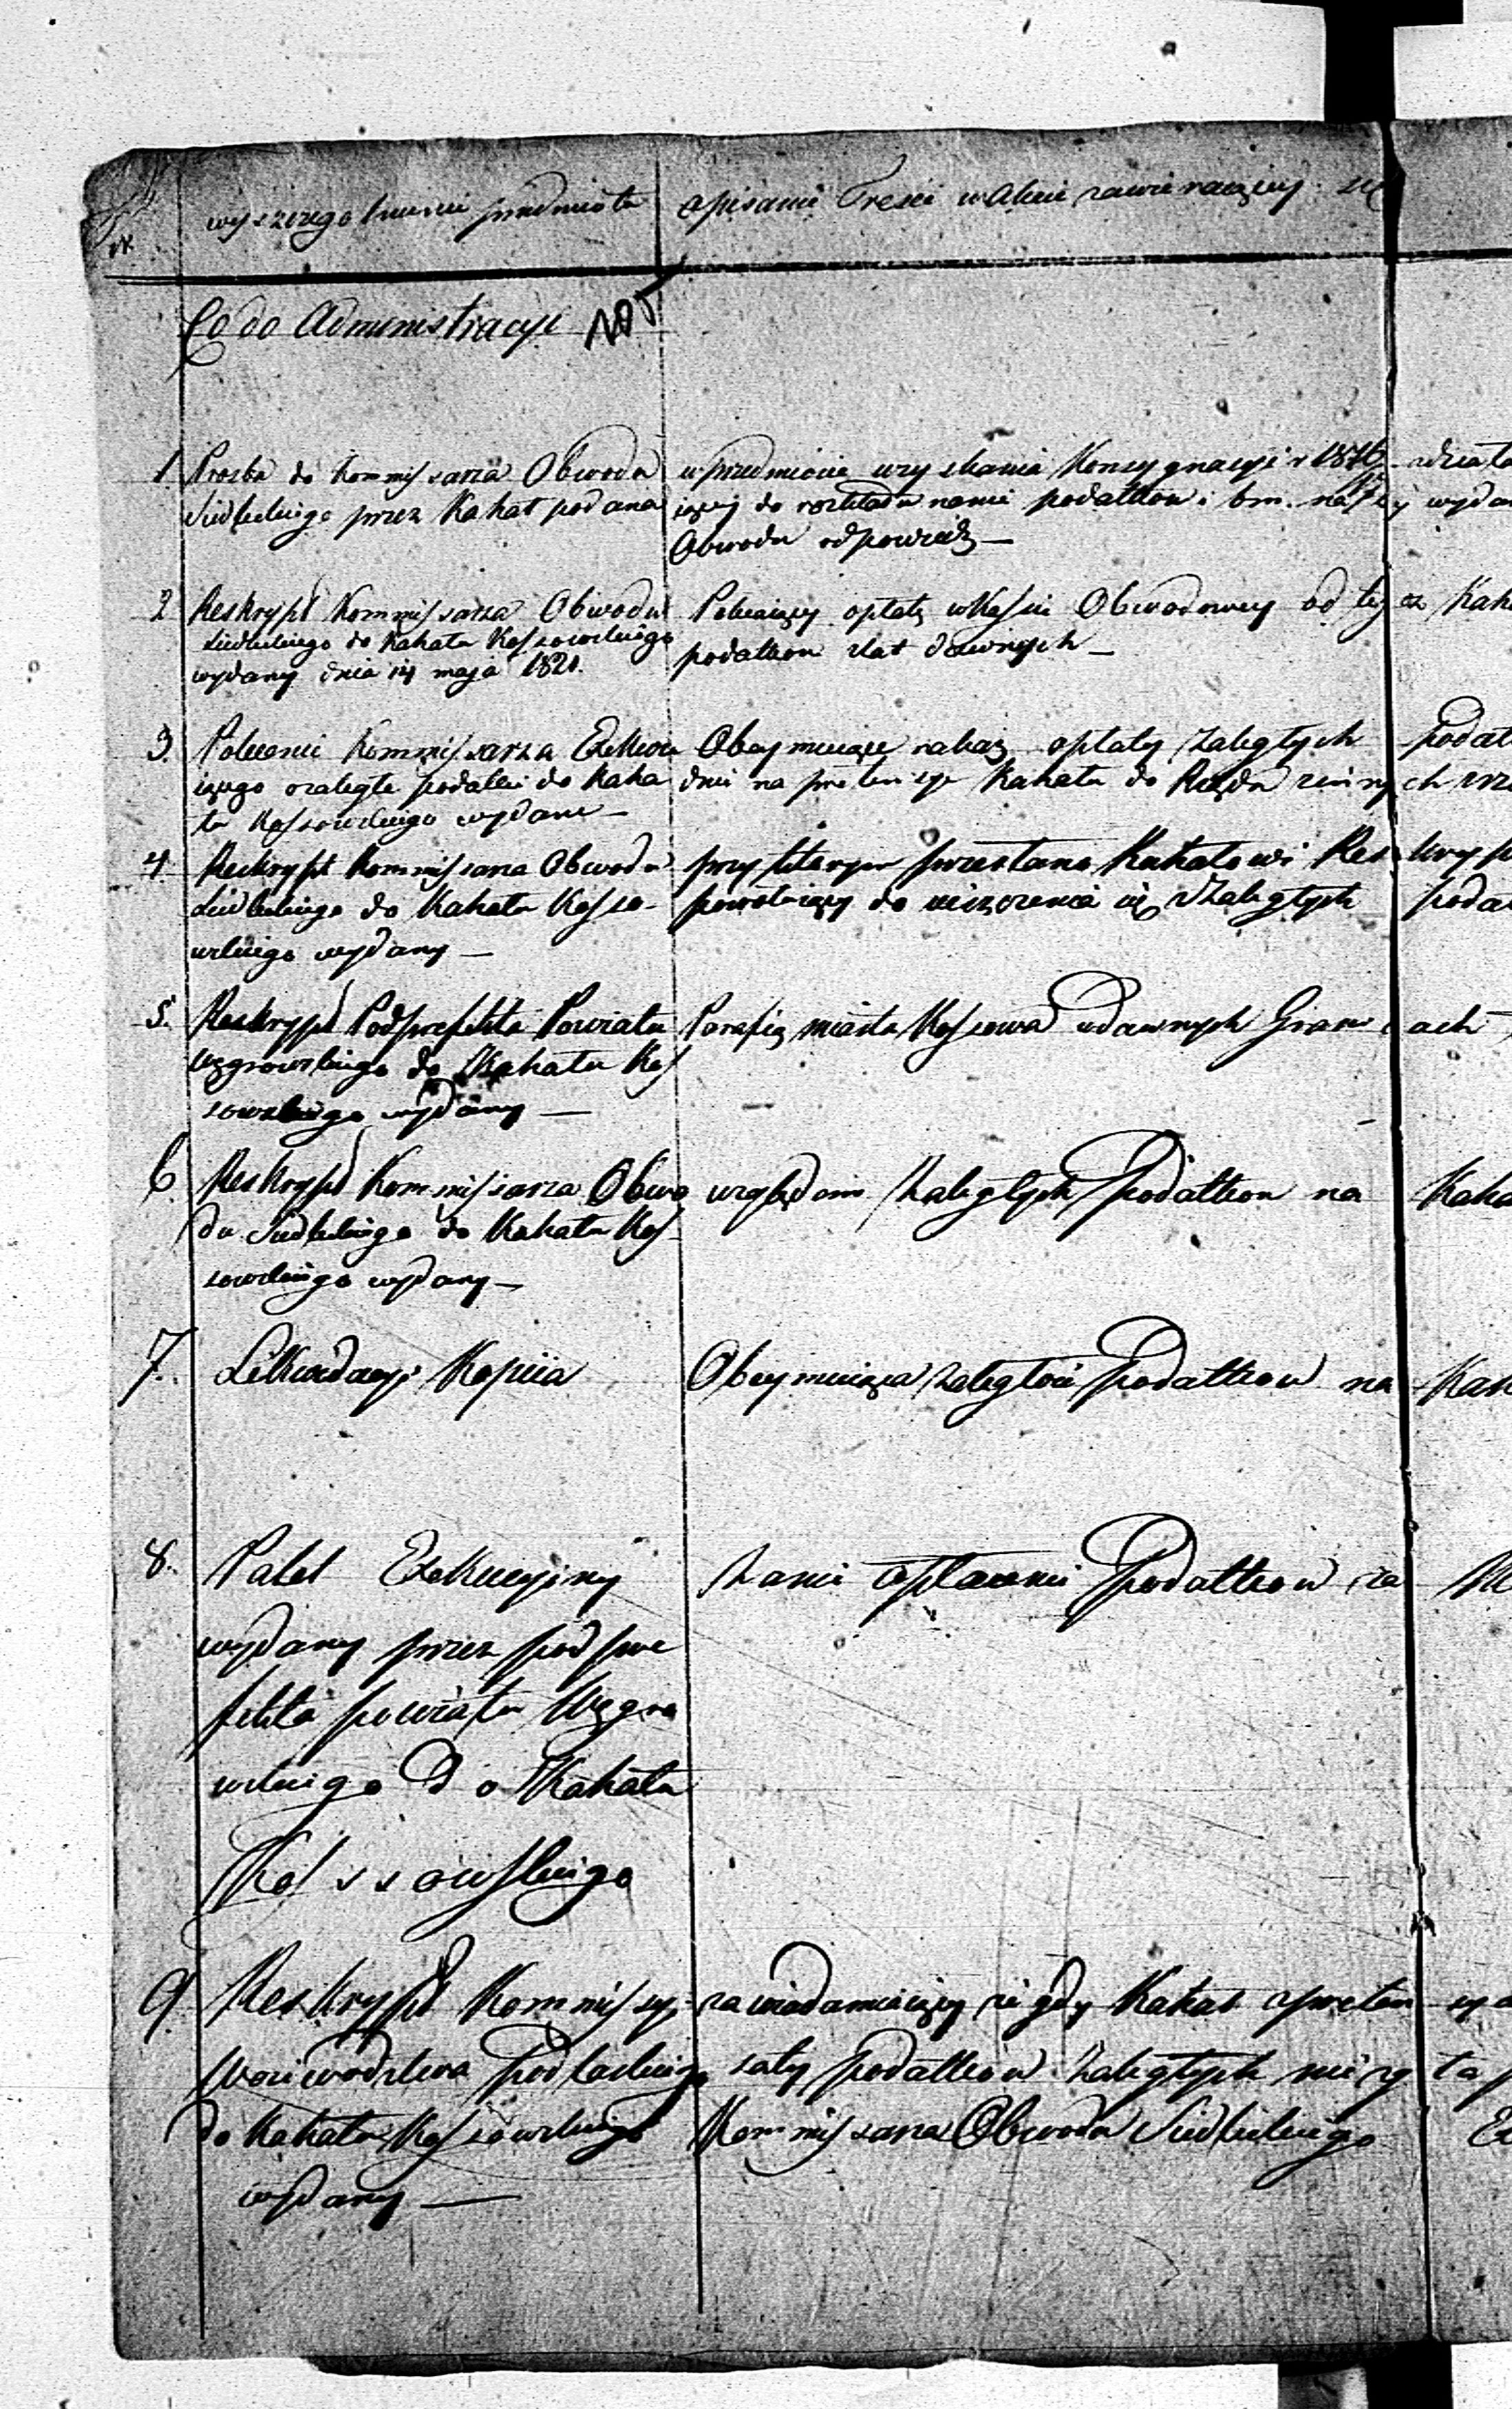 wyszczegolnienie przedmiotu
opisanie Tresci w akcie zawieraiącey się
Co do Administracyi
1. Prozba do Kommissarza Obwodu
Siedleckiego przez Kahał podana
w przedmiocie uzyskania Konsygnacyi
do podatkow i
Obwodu odpowiedz —
2 Reskrypt Kommissarza Obwodu
Siedleckiego do Kahału Kossowskiego
wydany dnia 14 maja 1821.
Polecaiący opłatę w Kassie Obwodowey od
podatkow z lat dawnych —
3. Polecenie Kommissarza Exekwu
iącego o zaległe podatki do Kaha
łu Kossowskiego wydane —
Obeymuiące nakaz opłaty zaległych podat
na pretensye Kahału do Rządu
4. Reskrypt Kommissarza Obwodu
Siedleckiego do Kahału Kosso-
wskiego wydany —
przy którym przesłano Kahałowi Reskryp
do uiszczenia się z zaległych poda
5. Reskrypt Podprefekta Powiatu
Węgrowskiego do Kahału Kos
sowskiego wydany —
Parafią miasta Kossowa w dawnych Granicach
6. Reskrypt Kommissarza Obwo
du Siedleckiego do Kahału Kos
sowskiego wydany —
względem zaległych Podatkow na Kaha
7. Likwidacyi Kopiia
Obeymuiąca zaległości Podatkow na Kah
8. Palet Exekucyiny
wydany przez podpre
fekta powiatu Węgro
wskiego do Kahału
Kossowskiego
za nie opłacenie Podatkow za
9. Reskrypt Kommissyi
Woiewodztwa Podlaskiego
do Kahału Kossowskiego
wydany —
zawiadamiaiący że gdy Kahał z pretensya
podatkow zaległych nie
Kommissarza Obwodu Siedleckiego